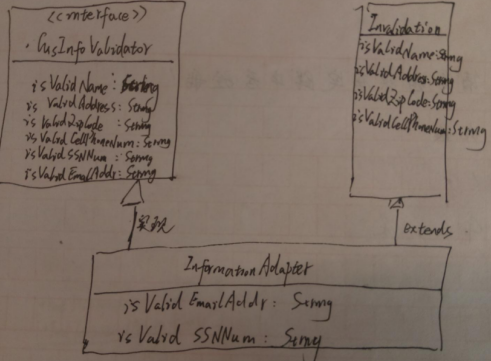 <<interface>>
CusInfoValidator
isValidName: String
isValidAddress: String
isValidZipCode : String
isValidCellPhoneNum: String
isValidSSNNum : String
isValidEmailAddr: String
Invalidation
isValidName: String
isValidAddress: String
isValidZipCode: String
isValidCellPhoneNum: String
实现
extends
InformationAdapter
isValid EmailAddr: String
isValid SSNNum : String